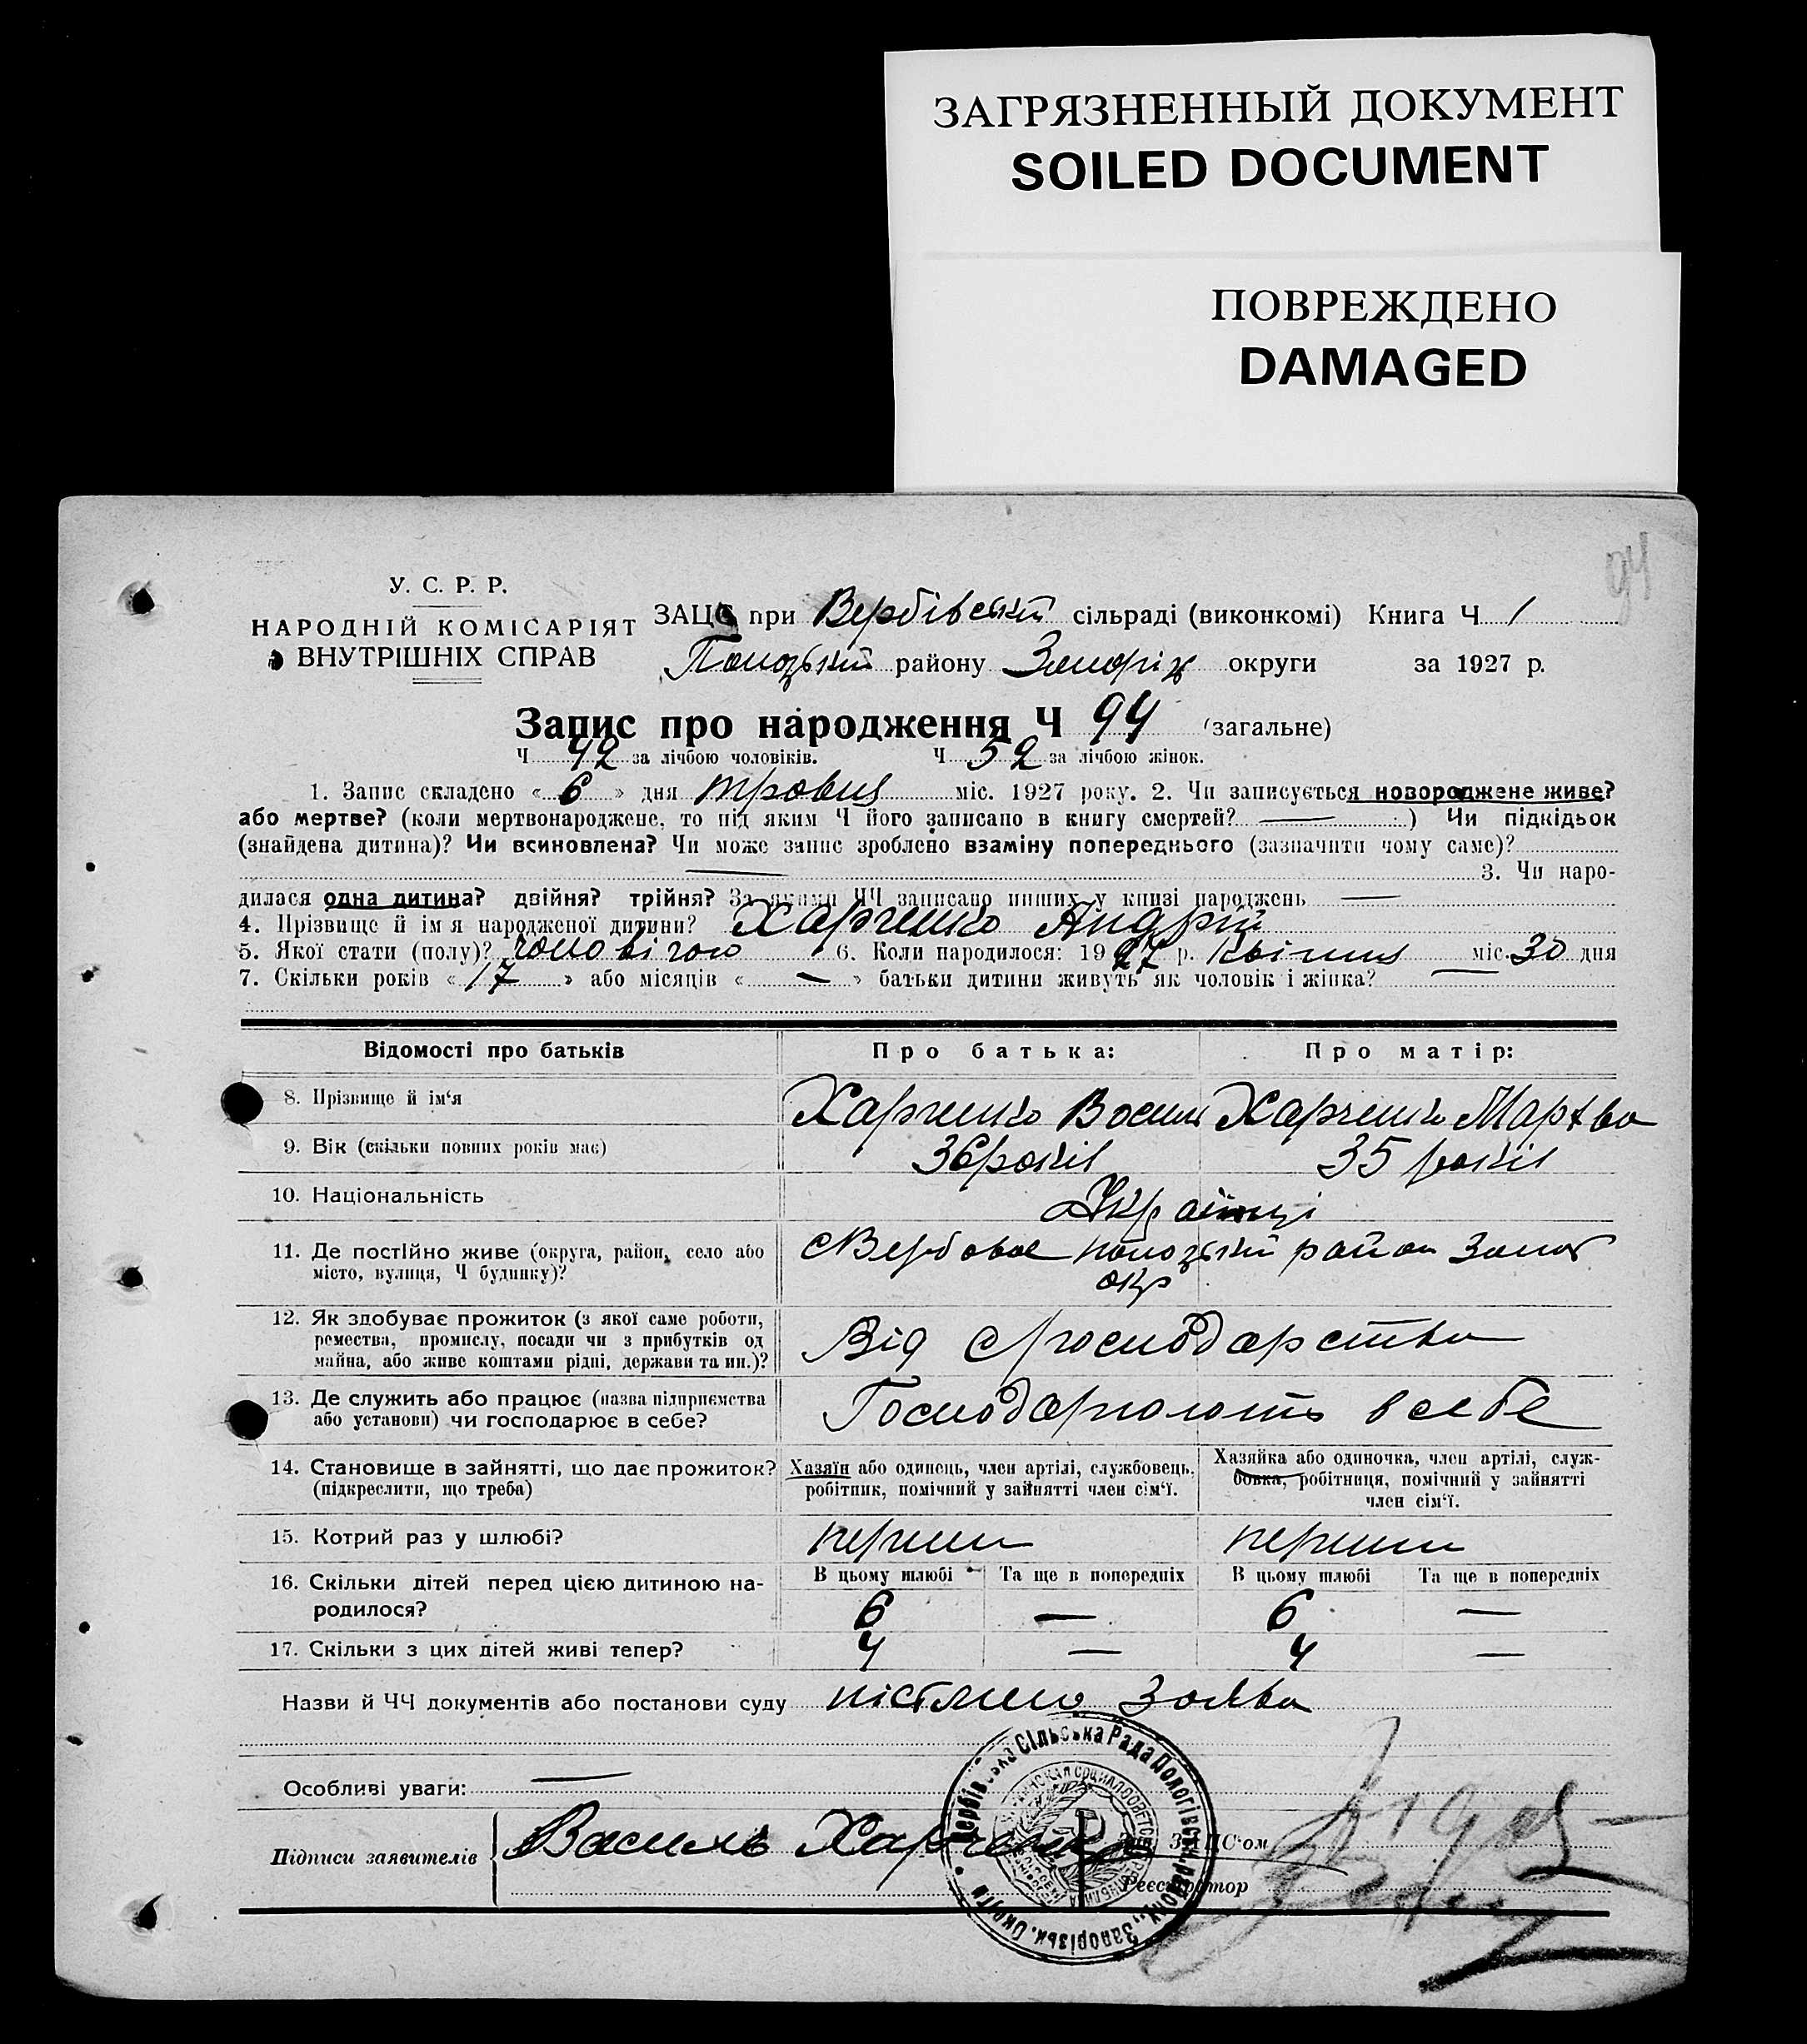 ЗАГРЯЗНЕННЫЙ ДОКУМЕНТ
SOILED DOCUMENT
ПОВРЕЖДЕНО
DAMAGED
94
У. С. Р. Р.
НАРОДНІЙ КОМІСАРІЯТ
ВНУТРІШНІХ СПРАВ
ЗАЦС при Вербівській сільраді (виконкомі) Книга Ч 1
району Запоріз округи за 1927 р.
Запис про народження Ч 94 (загальне)
Ч 42 за лічбою чоловіків. Ч 52 за лічбою жінок.
1. Запис складено « 6 » дня травня міс. 1927 року. 2. Чи записується новороджене живе?
або мертве? (коли мертвонароджене, то під яким Ч його записано в книгу смертей? — ) Чи підкідьок
(знайдена дитина)? Чи всиновлена? Чи може запис зроблено взаміну попереднього (зазначити чому саме)?
— 3. Чи наро-
дилася одна дитина? двійня? трійня? За якими ЧЧ записано инших у книзі народжень —
4. Прізвище й імя народженої дитини? Харченко Андрій
5. Якої стати (полу)? чоловічою 6. Коли народилося: 1927 р. Квітня міс. 30 дня
7. Скільки років « 17 » або місяців « — » батьки дитини живуть як чоловік і жінка? —
Відомості про батьків Про батька: Про матір:
8. Прізвище й ім‘я Харченко Василь Харченко Марфа
9. Вік (скільки повних років має) 36 років 35 років
10. Національність Українці
11. Де постійно живе (округа, район, село або
місто, вулиця, Ч будинку)?
район Запор
окр
12. Як здобуває прожиток (з якої саме роботи,
ремества, промислу, посади чи з прибутків од
майна, або живе коштами рідні, держави та ин.)?
Від с/господарства
13. Де служить або працює (назва підприємства
або установи) чи господарює в себе?
Господарюють в себе
14. Становище в зайнятті, що дає прожиток?
(підкреслити, що треба)
Хазяїн або одинець, член артілі, службовець,
робітник, помічний у зайнятті член сім‘ї.
Хазяйка або одиночка, член артілі, служ-
бовка, робітниця, помічний у зайнятті
член сім‘ї.
15. Котрий раз у шлюбі? перший перший
16. Скільки дітей перед цією дитиною на-
родилося?
В цьому шлюбі Та ще в попередніх В цьому шлюбі Та ще в попередніх
6 — 6 —
17. Скільки з цих дітей живі тепер? 4 — 4 —
Назви й ЧЧ документів або постанови суду заява
Особливі уваги: —
Підписи заявителів Василь Харченко
Зав. ЗАЦС‘ом
Реєстратор
Вербівська Сільська Рада Пологівськ. району, Запорізьк. Округи